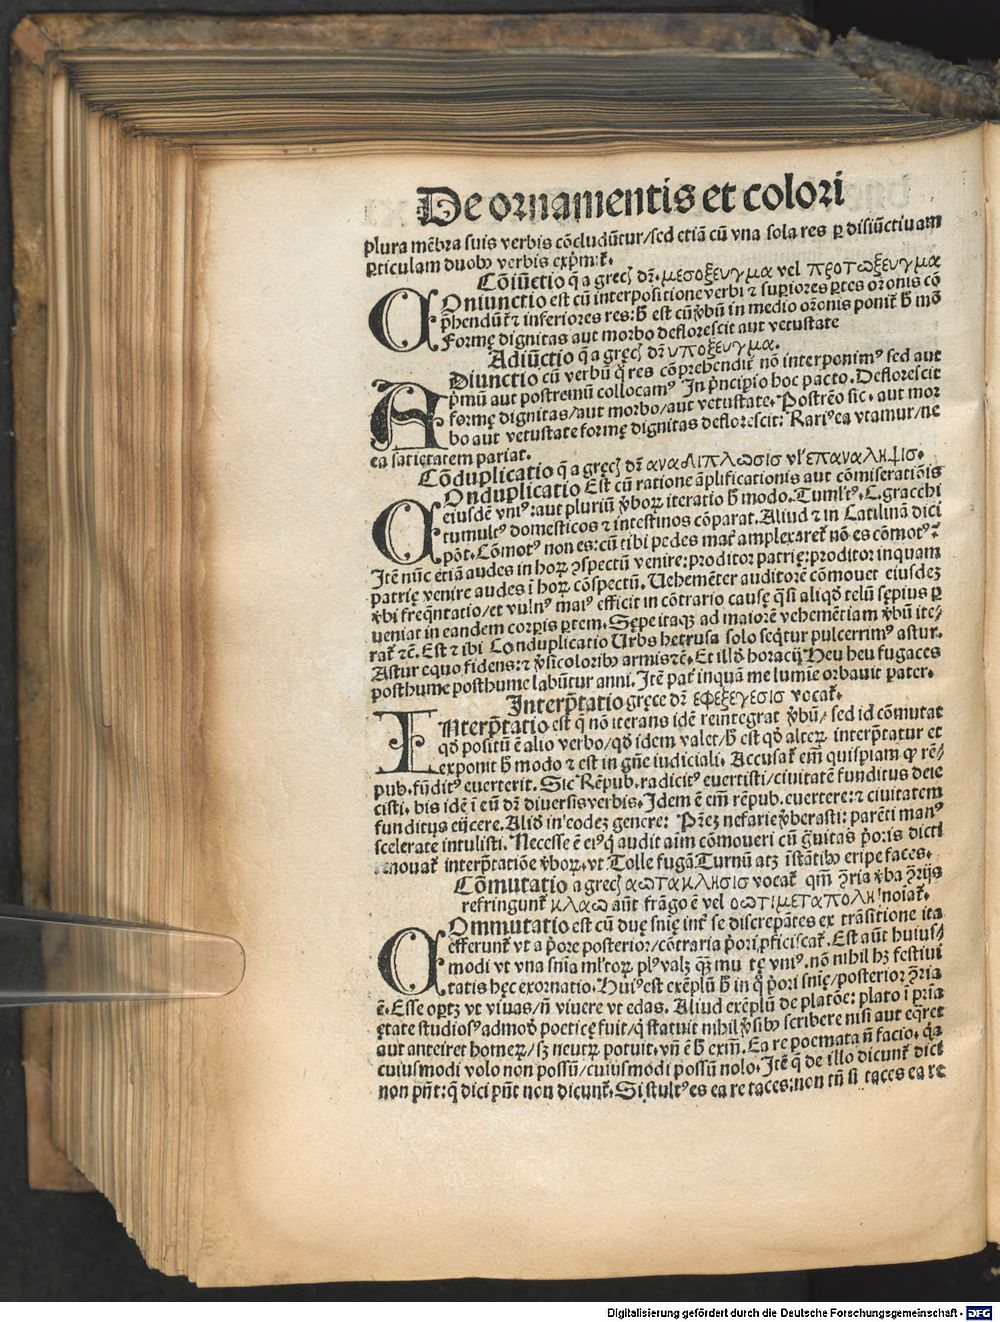 De ornamentis et colori
plura mēbra suis verbis cōcludūtur/sed etiā cū vna sola res ꝑ disiūctiuam
ꝑticulam duobꝰ verbis exp̄mit̄.
Cōiūctio q̄ a grecꝭ dr̄. μεσοξευγμα vel προτωξευγμα
COniunctio est cū interpositione verbi ⁊ supiores ꝑtes orōnis cō
p̄hendūt̄ ⁊ inferiores res: h̄ est cū v̄bū in medio orōnis ponit̄ h̄ mō
Formę dignitas aut morbo deflorescit aut vetustate
Adiūctio q̄ a gręcꝭ dr̄ υποξευγμα.
ADiunctio cū verbū q̄ res cōprehendit̄ nō interponimꝰ sed aut
p̄mū aut postremū collocamꝰ In p̄ncipio hoc pacto. Deflorescit
formę dignitas/aut morbo/aut vetustate. Postrēo sic. aut mor
bo aut vetustate formę dignitas deflorescit: Rariꝰ ea vtamur/ne
ea satietatem pariat.
Cōduplicatio q̄ a gręcꝭ dr̄ αναδιπλωσισ vl' επαναληψισ.
COnduplicatio Est cū ratione āplificationis aut cōmiseratiōis
eiusdē vniꝰ: aut pluriū v̄boꝝ iteratio h̄ modo. Tuml'tꝰ. C. gracchi
tumultꝰ domesticos ⁊ intestinos cōparat. Aliud ⁊ in Catilinā dici
pōt. Cōmotꝰ non es: cū tibi pedes mat̄ amplexaret̄ nō es cōmotꝰ:
Itē nūc etiā audes in hoꝝ ↄspectū venire: proditor patrię: proditor inquam
patrię venire audes ī hoꝝ cōspectū. Uehemēter auditorē cōmouet eiusdeꝫ
v̄bi freq̄ntatio/et vulnꝰ maiꝰ efficit in cōtrario causę q̄si aliqd̄ telū sępius ꝑ
ueniat in eandem corpis ptem. Sępe itaqꝫ ad maiorē vehemētiam v̄bū ite⸗
rat̄ ⁊c̄. Est ⁊ ibi Conduplicatio Urbs hetrusa solo seq̄tur pulcerrimꝰ astur.
Astur equo fidens: ⁊ v̄sicoloribꝰ armis ⁊c̄. Et illd̄ horacij Heu heu fugaces
posthume posthume labūtur anni. Itē pat̄ inquā me lumīe orbauit pater.
Interp̄tatio gręce dr̄ εφεξεγεσισ vocat̄.
INterp̄tatio est q̄ nō iterans idē reintegrat v̄bū/ sed id cōmutat
qd̄ positū ē alio verbo/qd̄ idem valet/h̄ est qd̄ alteꝝ interp̄tatur et
exponit h̄ modo ⁊ est in gn̄e iudiciali. Accusat̄ em̄ quispiam ꝙ rē⸗
pub. fūditꝰ euerterit. Sic Rēpub. radicitꝰ euertisti/ciuitatē funditus deie
cisti. his idē ī eū dr̄ diuersis verbis. Idem ē em̄ rēpub. euertere: ⁊ ciuitatem
funditus eijcere. Alid̄ in codeꝫ genere: Pr̄eꝫ nefarie v̄berasti: parēti manꝰ
scelerate intulisti. Necesse ē eiꝰ q̄ audit aīm cōmoueri cū ḡuitas p̄oris dicti
renouat̄ interp̄tatiōe v̄boꝝ. vt Tolle fugā Turnū atqꝫ īstātibꝰ eripe faces.
Cōmutatio a grecꝭ αωτακλησισ vocat̄ qm̄ ↄ̄ria v̄ba ↄ̄rijs
refringunt̄ κλαω aūt frāgo ē vel οωτιμεταπολη noīat̄.
COmmutatio est cū duę snīę int̄ se discrepātes ex trāsitione ita
efferunt̄ vt a p̄ore posterior/cōtraria p̄ori ꝓficiscat̄. Est aūt huius⸗
modi vt vna snīa ml'toꝝ plꝰ valꝫ qꝫ̄ mu tę vniꝰ. nō nihil hꝫ festiui
tatis hęc exornatio. Huiꝰ est exēplū h̄ in q̄ p̄ori snīę/posterior ↄ̄ria
ē. Esse oꝑtꝫ vt viuas/n̄ viuere vt edas. Aliud exēplū de platōe: plato ī pr̄ia
ętate studiosꝰ admod̄ poeticę fuit/q̄ statuit nihil v̄sibꝰ scribere nisi aut eq̄ret
aut anteiret homeꝝ/sꝫ neutꝝ potuit. vn̄ ē h̄ exm̄. Ea re poemata n̄ facio. q̄a
cuiusmodi volo non possū/cuiusmodi possū nolo. Itē q̄ de illo dicunt̄ dici
non pn̄t: q̄ dici pn̄t non dicunt̄. Si stultꝰ es ea re taces: non tn̄ si taces ea re
Digitalisierung gefördert durch die Deutsche Forschungsgemeinschaft - DFG